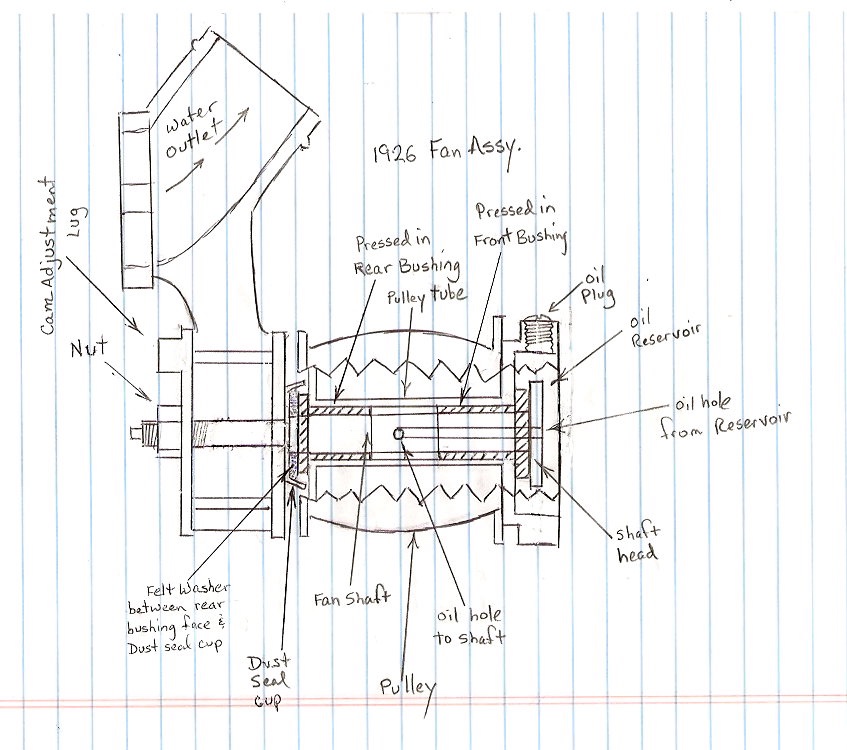 water
outlet
1926 Fan Assy.
Cam Adjustment
Lug
Pressed in
Rear Bushing
Pressed in
Front Bushing
Pulley tube
oil
Plug
oil
Reservoir
Nut
oil hole
from Reservoir
shaft
head
Felt Washer
between rear
bushing face &
Dust seal cup
Fan Shaft
oil hole
to shaft
Dust
Seal
cup
Pulley